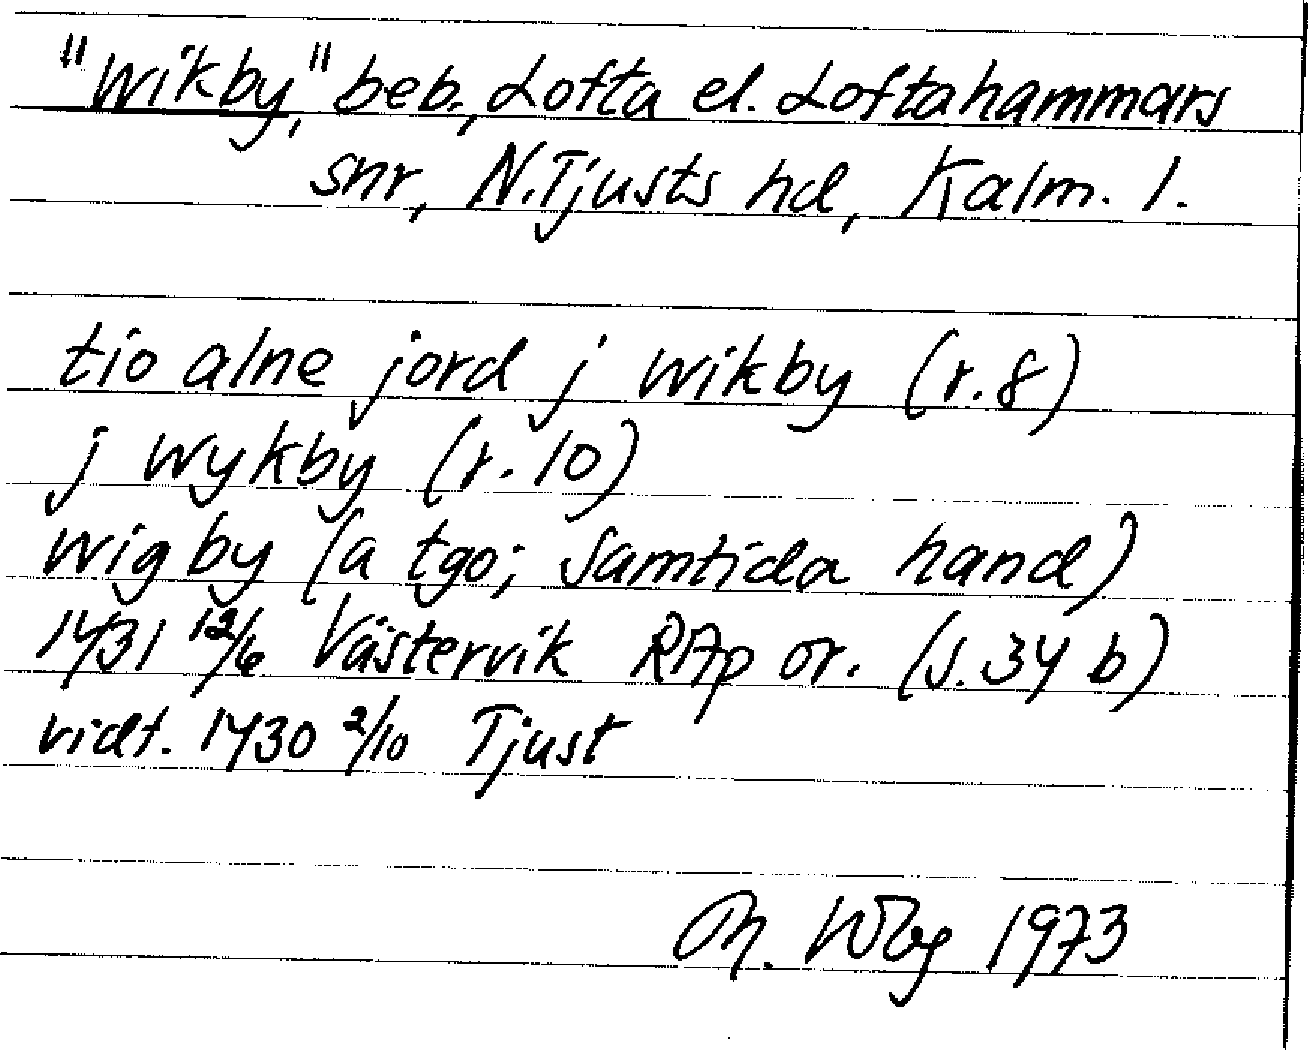 "Wikby," beb., Lofta el. Loftahammars
snr, N. Tjusts hd, Kalm. l.
tio alne jord j wikby (r. 8)
j wykby (r. 10)
wigby (a tgo; samtida hand)
1431 12/6 Västervik RAp or. (s. 34 b)
vidt. 1430 2/10 Tjust
M. Wbg 1973